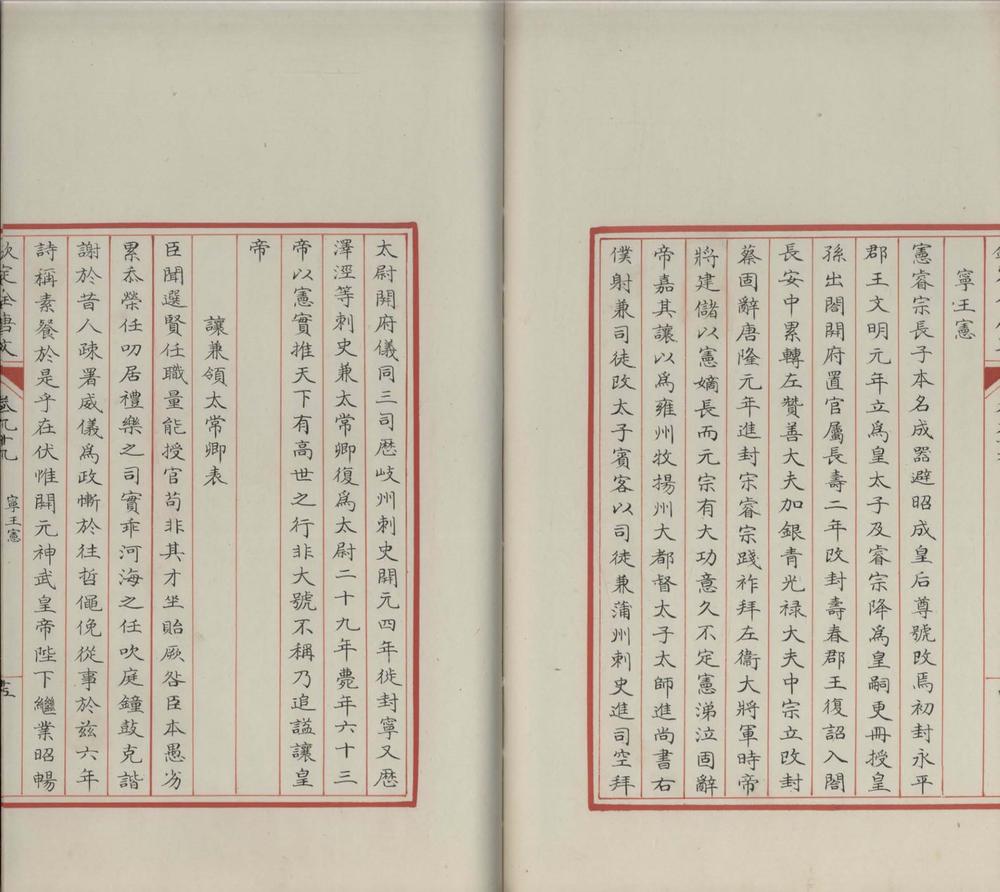 寧王憲
憲睿宗長子本名成器避昭成皇后尊號改焉初封永平
郡王文明元年立爲皇太子及睿宗降爲皇嗣更冊授皇
孫出閤開府置官屬長壽二年改封壽春郡王復詔入閤
長安中累轉左贊善大夫加銀青光祿大夫中宗立改封
蔡固辭唐隆元年進封宋睿宗踐祚拜左衞大將軍時帝
將建儲以憲嫡長而元宗有大功意久不定憲涕泣固辭
帝嘉其讓以爲雍州牧揚州大都督太子太師進尚書右
僕射兼司徒改太子賓客以司徒兼蒲州刺史進司空拜
太尉開府儀同三司歷岐州刺史開元四年徙封寧又歷
澤涇等刺史兼太常卿復爲太尉二十九年薨年六十三
帝以憲實推天下有高世之行非大號不稱乃追諡讓皇
帝
讓兼領太常卿表
臣聞選賢任職量能授官苟非其才坐貽厥咎臣本愚劣
累忝榮任叨居禮樂之司實乖河海之任吹庭鐘鼓克諧
謝於昔人疎署威儀爲政慙於往哲僶俛從事於茲六年
詩稱素餐於是乎在伏惟開元神武皇帝陛下繼業昭暢
欽定全唐文
卷九十九
寧王憲